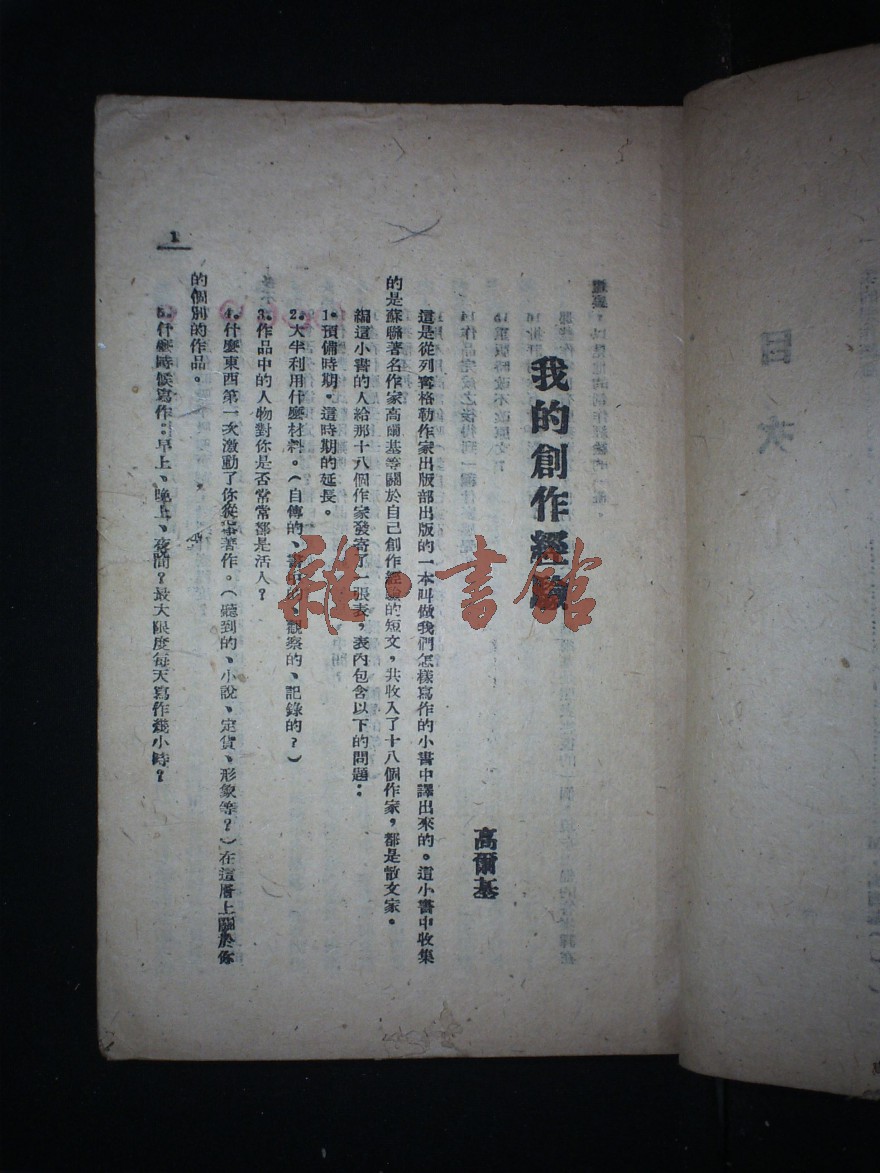 我的創作經驗
高爾基
這是從列寧格勒作家出版部出版的一本叫做我們怎樣寫作的小書中譯出來的。這小書中收集
的是蘇聯著名作家高爾基等關於自己創作經驗的短文，共收入了十八個作家，都是散文家。
編這小書的人給那十八個作家發寄了一張表，表內包含以下的問題：
1。預備時期。這時期的延長。
2。大半利用什麼材料。（自傳的、書中的、觀察的、記錄的？）
3。作品中的人物對你是否常常都是活人？
4。什麼東西第一次激動了你從事著作。（聽到的、小說、定貨、形象等？）在這層上關於你
的個別的作品。
5。什麼時候寫作：早上、晚上、夜間？最大限度每天寫作幾小時？
1
雜·書館
目次